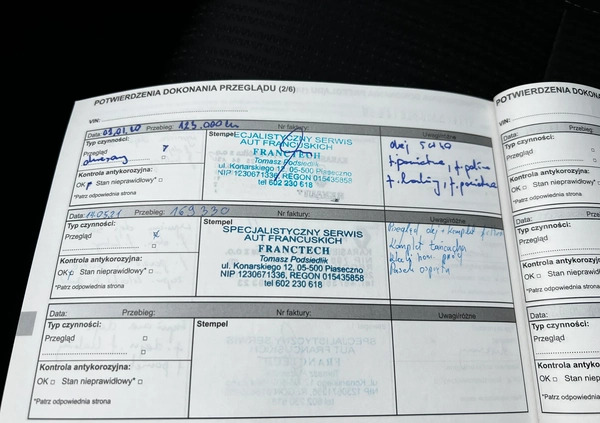 POTWIERDZENIA DOKONANIA PRZEGLĄDU (2/6)
VIN:
Data: 03.01.20 Przebieg: 125.000 km Nr faktury: Uwagi/różne
Typ czynności:
Przegląd
okresowy
Kontrola antykorozyjna:
OK Stan nieprawidłowy*
*Patrz odpowiednia strona
Stempel
SPECJALISTYCZNY SERWIS
AUT FRANCUSKICH
FRANCTECH
Tomasz Podsiedlik
ul. Konarskiego 12, 05-500 Piaseczno
NIP 1230671336, REGON 015435858
tel 602 230 618
olej 5W40
f. powietrza, f. paliwa
f. kabiny, f. powietrza
Data: 14.05.21 Przebieg: 169330 Nr faktury: Uwagi/różne
Typ czynności:
Przegląd x
Kontrola antykorozyjna:
OK Stan nieprawidłowy*
*Patrz odpowiednia strona
Stempel
SPECJALISTYCZNY SERWIS
AUT FRANCUSKICH
FRANCTECH
Tomasz Podsiedlik
ul. Konarskiego 12, 05-500 Piaseczno
NIP 1230671336, REGON 015435858
tel 602 230 618
Przegląd olej + komplet filtrów
Komplet
Klocki ham. przód
Pasek osprzętu
Data: Przebieg: Nr faktury: Uwagi/różne
Typ czynności:
Przegląd
Kontrola antykorozyjna:
OK Stan nieprawidłowy*
*Patrz odpowiednia strona
Stempel
POTWIERDZENIA DOKONA
VIN:
Data: Przebieg
Typ czynności:
Przegląd
Kontrola antykoro
OK Stan niepra
*Patrz odpowiednia
Data:
Typ czynności
Przegląd
Kontrola antyk
OK Stan nie
*Patrz odpowied
Data:
Typ czynno
Przegląd
Kontrola a
OK Sta
*Patrz odpo